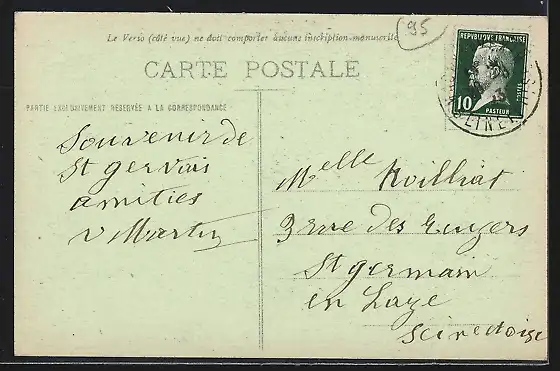 95
Le Verso (côté vue) ne doit comporter aucune inscription manuscrite
CARTE POSTALE
PARTIE EXCLUSIVEMENT RÉSERVÉE A LA CORRESPONDANCE
REPUBLIQUE FRANÇAISE
10
POSTES
PASTEUR
Souvenir de
St gervais
amities
v Martin
Melle
3 rue des
St germain
en Laye
Seine et oise